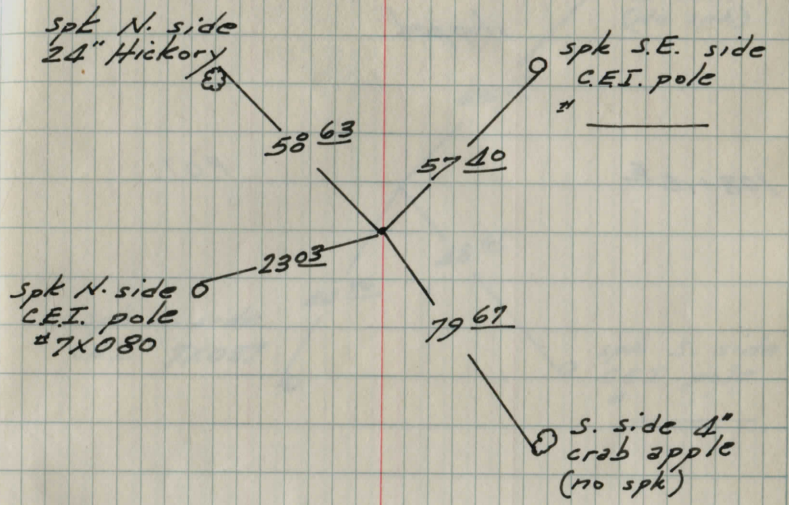 spk N. side
24" Hickory
spk S.E. side
C.E.I. pole
# ______
58 63
57 40
23 03
spk N. side
C.E.I. pole
#7X080
79 67
S. side 4"
crab apple
(no spk)